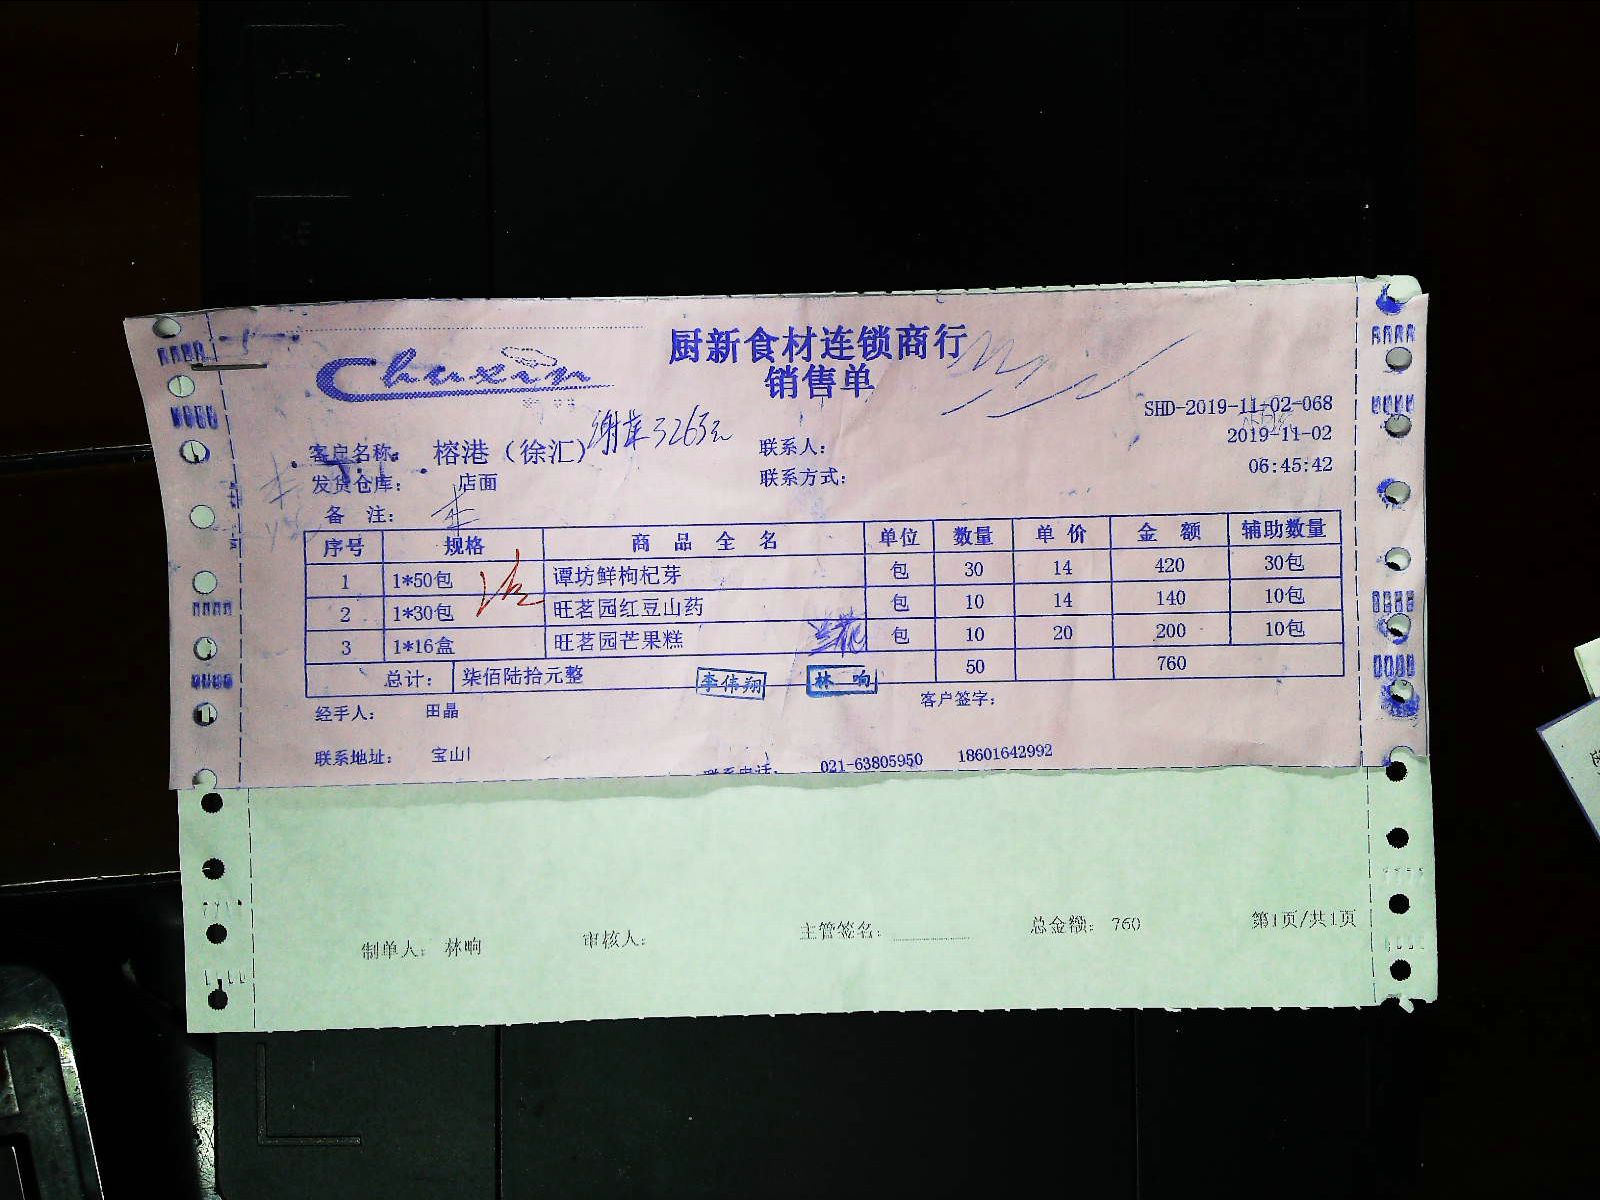 厨新食材连锁商行
Chuxin
销售单
SHD-2019-11-02-068
2019-11-02
06:45:42
客户名称: 榕港（徐汇） 3263元 联系人:
发货仓库: 店面 联系方式:
备 注:
序号 规格 商 品 全 名 单位 数量 单 价 金 额 辅助数量
1 1*50包 谭坊鲜枸杞芽 包 30 14 420 30包
2 1*30包 旺茗园红豆山药 包 10 14 140 10包
3 1*16盒 旺茗园芒果糕 包 10 20 200 10包
总计: 柒佰陆拾元整 50 760
李伟翔 林 响
经手人: 田晶 客户签字:
联系地址: 宝山 联系电话: 021-63805950 18601642992
制单人: 林响 审核人: 主管签名: 总金额: 760 第1页/共1页